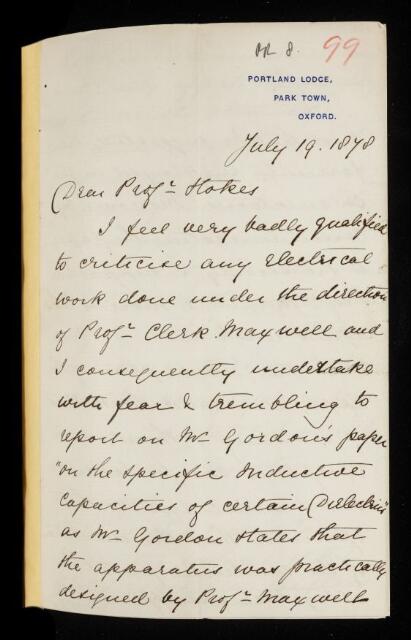 RR 8. 99
PORTLAND LODGE,
PARK TOWN,
OXFORD.
July 19. 1878
Dear Profr Stokes
I feel very badly qualified
to criticise any Electrical
work done under the direction
of Profr Clerk Maxwell and
I consequently undertake
with fear & trembling to
report on Mr Gordon's paper
"on the specific Inductive
Capacities of certain Dielectrics"
as Mr Gordon states that
the apparatus was practically
designed by Profr Maxwell